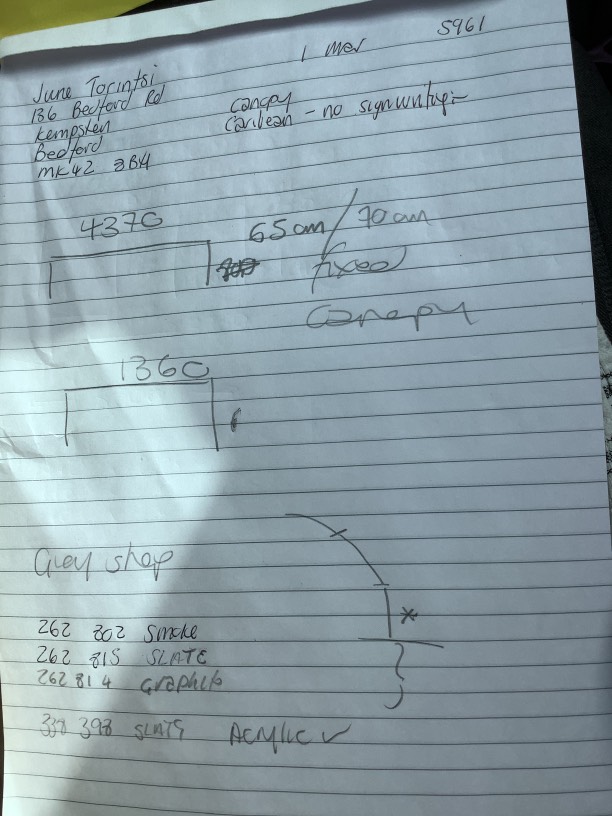 5961
1 Mer
June Torintsi
136 Bedford Rd
Kempsten
Bedford
MK42 8BH
Canopy
- no signwriting
4370
65cm/70cm
fixed
Canopy
1360
Grey shop
262 202 Smoke
262 815 SLATE
262 814 Graphite
338 398 SLATE Acrylic ✓